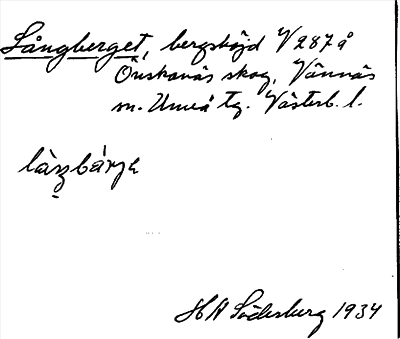 Långberget, bergshöjd V 287 å
Önskanäs skog, Vännäs
sn. Umeå tg. Västerb. l.
làŋbárjə
HH Söderburg 1934